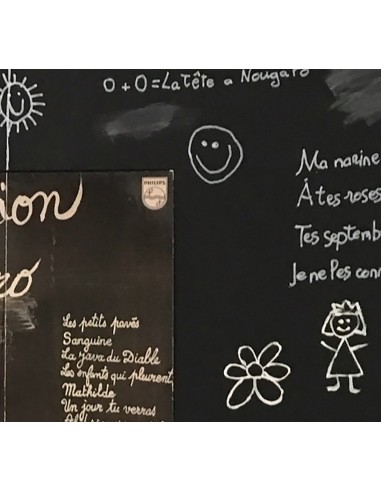 0 + 0 = La Tête a Nougaro
PHILIPS
Ma narine
À tes roses
Tes septemb
Je ne les con
ion
ro
Les petits pavés
Sanguine
La Java du Diable
Les enfants qui pleurent
Mathilde
Un jour tu verras